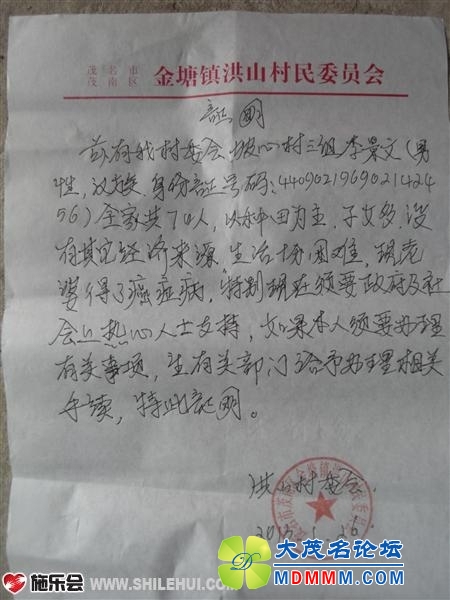 茂名市
茂南区 金塘镇洪山村民委员会
证明
兹有我村委会坡心村三组李景文（男
性，汉族，身份证号码：4409021969021424
56）全家共7口人，以种田为主，子女多，没
有其它经济来源，生活十分困难，现老
婆得了癌症病，特别现在须要政府及社
会上热心人士支持，如果本人须要办理
有关事项，望有关部门给予办理相关
手续，特此证明。
洪山村委会
施乐会
WWW.SHILEHUI.COM
大茂名论坛
MDMMM.COM